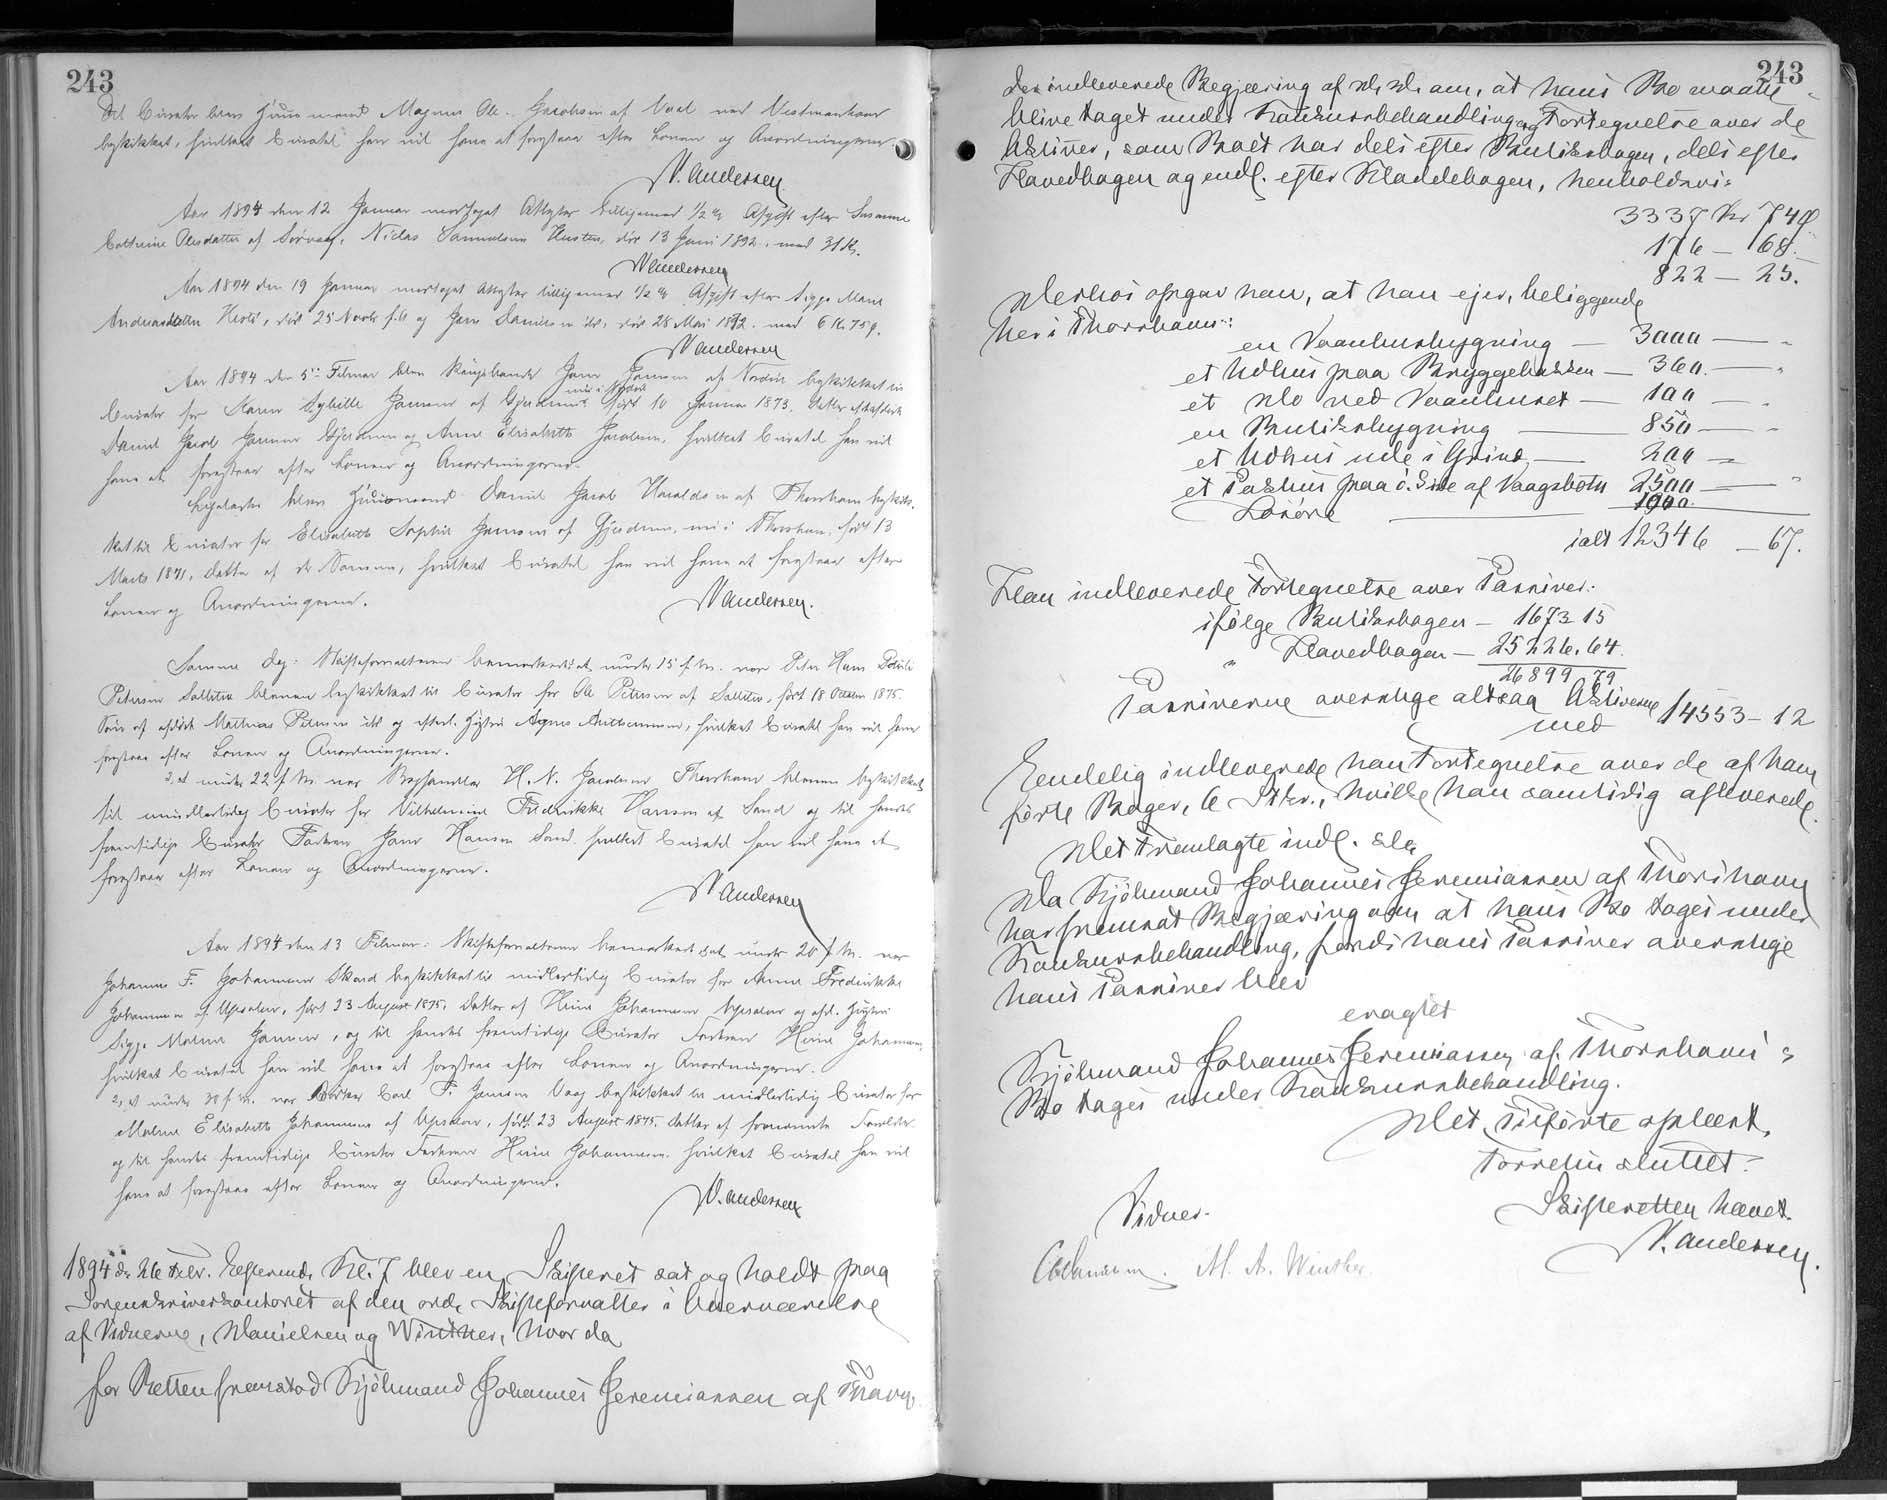 243
Til Curator blev Huusmand Magnus Ole Jacobsen af Vaal ved Vestmanhavn
beskikket, hvilket Curatel han vil have at forestaa efter Loven og Anordningerne.
N. Andersen
Aar 1894 den 12 Januar modtaget Attester tilligemed 1/2 % Afgift efter Susanne
Cathrine Olesdatter af Sørvaag, Niclas Samuelsens Hustru, død 13 Juni 1892, med 31 Kr.
N Andersen
Aar 1894 den 19 Januar modtaget Attester tilligemed 1/2 % Afgift efter Sigga Marie
Andreasdatter, død 25 Novbr f.A. og Jens Danielsen, død 28 Mai 1892. med 6 Kr. 75 Ø.
N Andersen
Aar 1894 den 5te Februar blev Kongsbonde Joen Joensen af beskikket til
nu i
Curator for Karen Sybille Joensen af Gjedren født 10 Januar 1873, Datter af
Daniel Jacob Joensen Gjedren og Anne Elisabeth Jacobsen, hvilket Curatel han vil
have at forestaa efter Loven og Anordningerne.
Ligeledes blev Huusmand Daniel Jacob Haraldsen af Thorshavn beskik-
ket til Curator for Elisabeth Sophie Joensen af Gjedren, nu i Thorshavn, født 13
Marts 1871, Datter af de Samme, hvilket Curatel han vil have at forestaa efter
Loven og Anordningerne.
N Andersen.
Samme Dag: Skifteforvalteren bemærkede at under 15 f. M. var Peter Hans
Petersen Selletræ bleven beskikket til Curator for Ole Petersen af Selletræ, født 18 October 1875.
Søn af afdøde Mathias Petersen og efterl. Hustru Agnes, hvilket Curatel han vil have
forestaa efter Loven og Anordningerne.
2, at under 22 f. M. var Boghandler H. N. Jacobsen Thorshavn bleven beskikket
til midlertidig Curator for Vilhelmine Fredrikke Hansen af Sand og til hendes
fremtidige Curator Faderen Joen Hansen Sand hvilket Curatel han vil have at
forestaa efter Loven og Anordningerne.
N Andersen
Aar 1894 den 13 Februar: Skifteforvalteren bemærkede at under 20 f. M. var
Johannes F. Johannesen Skaard beskikket til midlertidig Curator for Anna Fredrikke
Johannesen af Upsalen, født 23 August 1875, Datter af Heine Johannesen Upsalen og afd. Hustru
Sigga Malene Joensen, og til hendes fremtidige Curator Faderen Heine Johannesen,
hvilket Curatel han vil have at forestaa efter Loven og Anordningerne.
2, at under 30 f. M. var Carl F. Joensen Vaag beskikket til midlertidig Curator for
Malene Elisabeth Johannesen af Upsalen, født 23 August 1875. Datter af fornævnte Forældre
og til hendes fremtidige Curator Faderen Heine Johannesen. hvilket Curatel han vil
have at forestaa efter Loven og Anordningerne.
N. Andersen
1894 d. 26 Febr. Eefterm. Kl. 7 blev en Skifteret sat og holdt paa
Sorenskriverkontoret af den ord. Skifteforvalter i Overværelse
af Vidnerne, Danielsen og Winther, hvor da
for Retten fremstod Kjöbmand Johannes Jeremiassen af Thavn.
243
der indleverede Begjæring af D. D. om, at hans Bo maatte
blive taget under Konkursbehandling og Fortegnelse over de
Aktiver, som Boet har dels efter Butiksbogen, dels efter
Hovedbogen og endl. efter Kladdebogen, henholdsvis
3337 Kr 74 Ø
176 - 68.
822 - 25.
Derhos opgav han, at han ejer, beliggende
her i Thorshavn:
en Vaanhusbygning - 3000 - "
et Udhus paa Bryggebakken - 360. - "
et Do ved Vaanhuset - 100 - "
en Butiksbygning - 850 - "
et Udhus ude i Grind - 200 - "
et Pakhus paa ö. Side af Vaagsbotn 2500 - "
Lösöre - 1000
ialt 12346 - 67.
Han indleverede Fortegnelse over Passiver:
ifölge Butiksbogen - 1673 15
" Hovedbogen - 25226.64.
26899 79
Passiverne overstige altsaa Aktiverne
med 14553 - 12
Eendelig indleverede han Fortegnelse over de af ham
förte Böger, 6 Stkr., hvilke han samtidig afleverede.
Det Fremlagte indl. sle
Da Kjöbmand Johannes Jeremiassen af Thorshavn
har fremsat Begjæring om at hans Bo tages under
Konkursbehandling, fordi hans Passiver overstige
hans Passiver blev
eragtet
Kjöbmand Johannes Jeremiassen af Thorshavns
Bo tages under Konkursbehandling.
Det Tilförte oplæst,
Forretn sluttet.
Skifteretten hævet.
N. Andersen.
Vidner.
M. A. Winther.